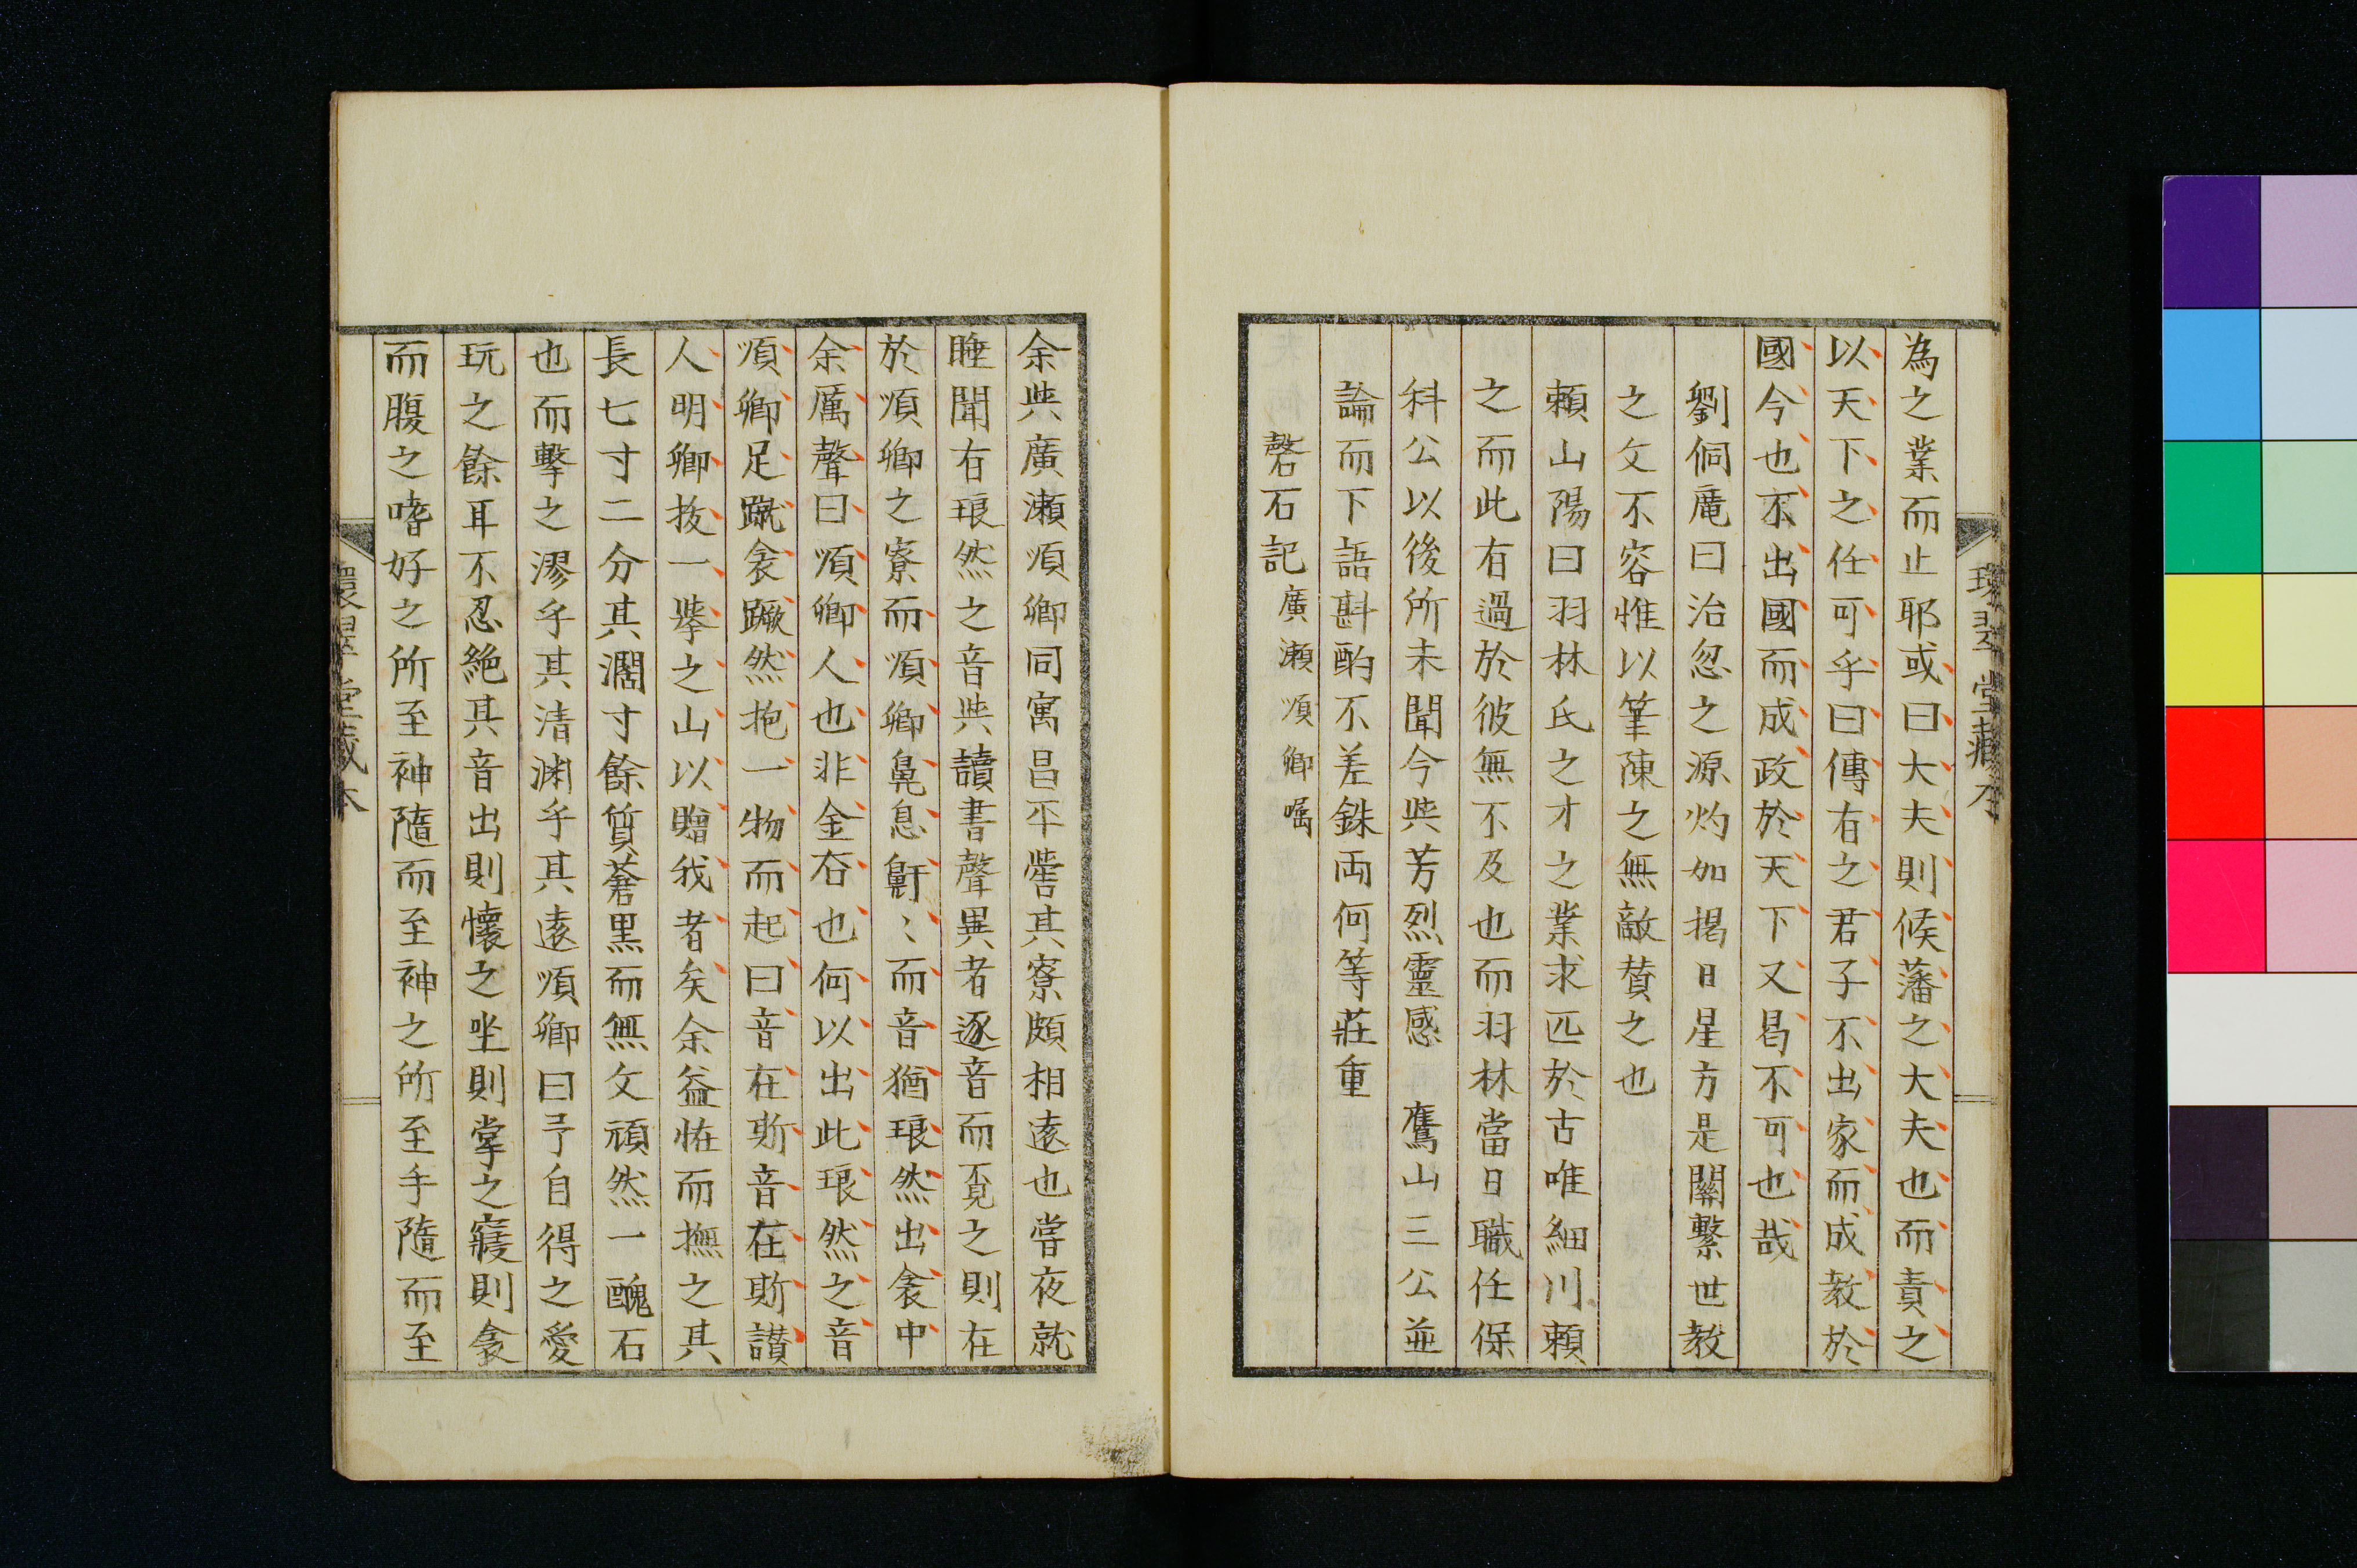 為之業而止耶或曰大夫則候藩之大夫也而責之
以天下之任可乎曰傳有之君子不出家而成教於
國今也不出國而成政於天下又曷不可也哉
劉侗庵曰治忽之源灼如揭日星方是關繫世教
之文不容惟以筆陳之無敵賛之也
賴山陽曰羽林氏之才之業求匹於古唯細川賴
之而此有過於彼無不及也而羽林當日職任保
科公以後所未聞今與芳烈靈感 鷹山三公並
論而下語斟酌不差銖両何等莊重
磬石記 廣瀬順卿嘱
余與廣瀬順卿同寓昌平黌其寮頗相遠也嘗夜就
睡聞有琅然之音與讀書聲異者逐音而覔之則在
於順卿之寮而順卿鼻息鼾〻而音猶琅然出衾中
余厲聲曰順卿人也非金石也何以出此琅然之音
順卿足蹴衾蹶然抱一物而起曰音在斯音在斯讃
人明卿抜一拳之山以贈我者矣余益怪而撫之其
長七寸二分其濶寸餘質蒼黒而無文頑然一醜石
也而擊之漻乎其清渊乎其遠順卿曰予自得之愛
玩之餘耳不忍絶其音出則懷之坐則掌之寤則衾
而腹之嗜好之所至神隨而至神之所至手隨而至
環翠堂藏本
環翠堂藏本